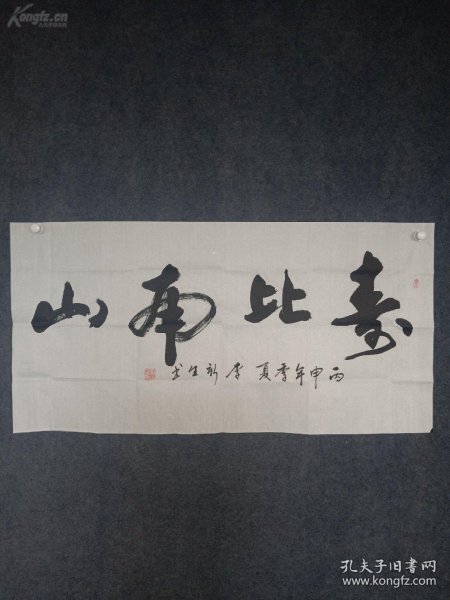 Kongfz.cn
寿比南山
丙申年季夏 李新生书
孔夫子旧书网
www.kongfz.com